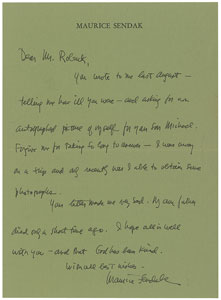 MAURICE SENDAK
Dear Mr.
You wrote to me last August –
telling me how ill you were – and asking for an
autographed picture of myself for your son Michael.
Forgive me for taking so long to answer – I was away
on a trip and only recently was I able to obtain some
photographs.
Your letter made me very sad. My own father
died only a short time ago. I hope all is well
with you – and that God has been kind.
With all best wishes,
Maurice Sendak